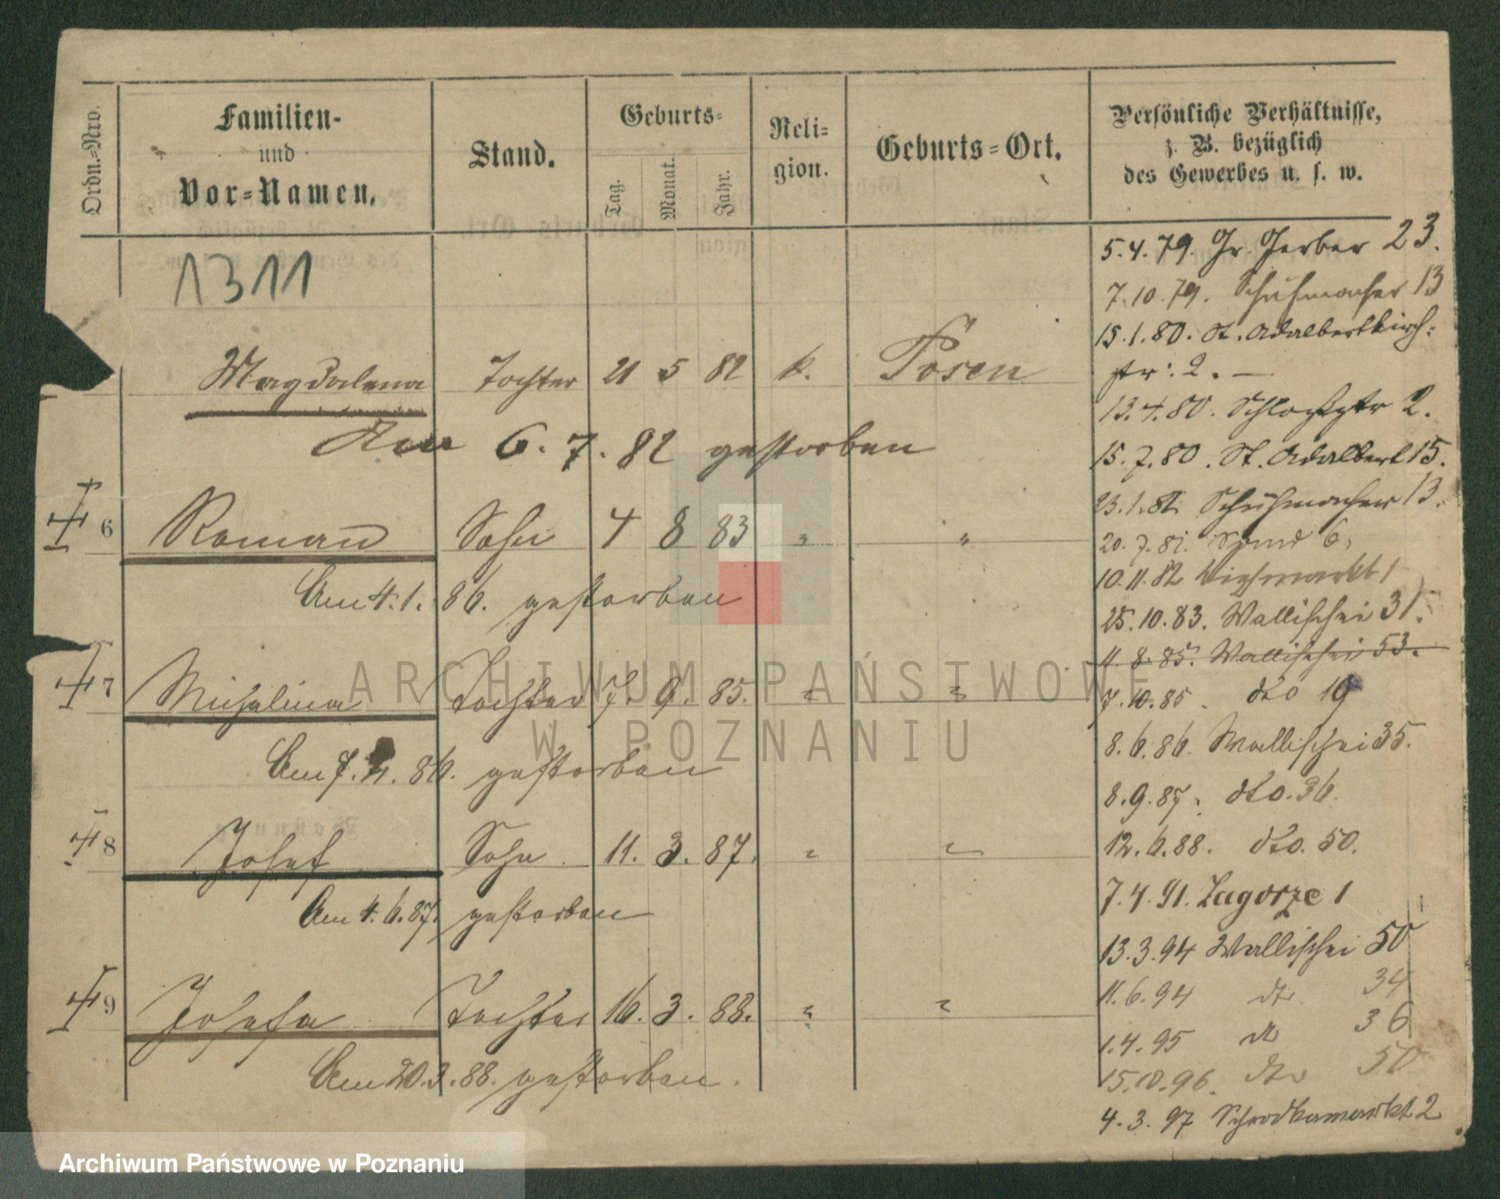 Ordn.-Nro.
Familien-
und
Vor-Namen.
Stand.
Geburts-
Tag.
Monat.
Jahr.
Reli-
gion.
Geburts-Ort.
Persönliche Verhältnisse,
z. B. bezüglich
des Gewerbes u. s. w.
1311
Magdalena Tochter 21 5 82 k. Posen
Am 6. 7. 82 gestorben
6 Roman Sohn 4 8 83 " "
Am 4. 1. 86. gestorben
7 Michalina Tochter 7. 9. 85. " "
Am 7. 86. gestorben
8 Josef Sohn 11. 3. 87. " "
Am 4. 6. 87. gestorben
9 Josefa Tochter 16. 3. 88. " "
Am 20. 3. 88. gestorben.
5. 4. 79. Gr. Gerber 23.
7. 10. 79. Schuhmacher 13
15. 1. 80. St. Adalbertkirch-
str: 2. —
13. 4. 80. Schloßstr 2.
15. 7. 80. St. Adalbert 15.
23. 1. 81. Schuhmacher 13.
20. 7. 81. 6.
10. 11. 82 Viehmarkt 1
25. 10. 83. Wallischei 31.
11. 8. 85. Wallischei 53.
7. 10. 85. dto 19
8. 6. 86. Wallischei 35.
8. 9. 87. dto. 36.
12. 6. 88. dto. 50.
7. 4. 91. Zagorze 1
13. 3. 94 Wallischei 50
11. 6. 94 dto 34
1. 4. 95 dto 36
15. 10. 96. dto 50
4. 3. 97 Schrodkamarkt 2
ARCHIWUM PAŃSTWOWE
W POZNANIU
Archiwum Państwowe w Poznaniu